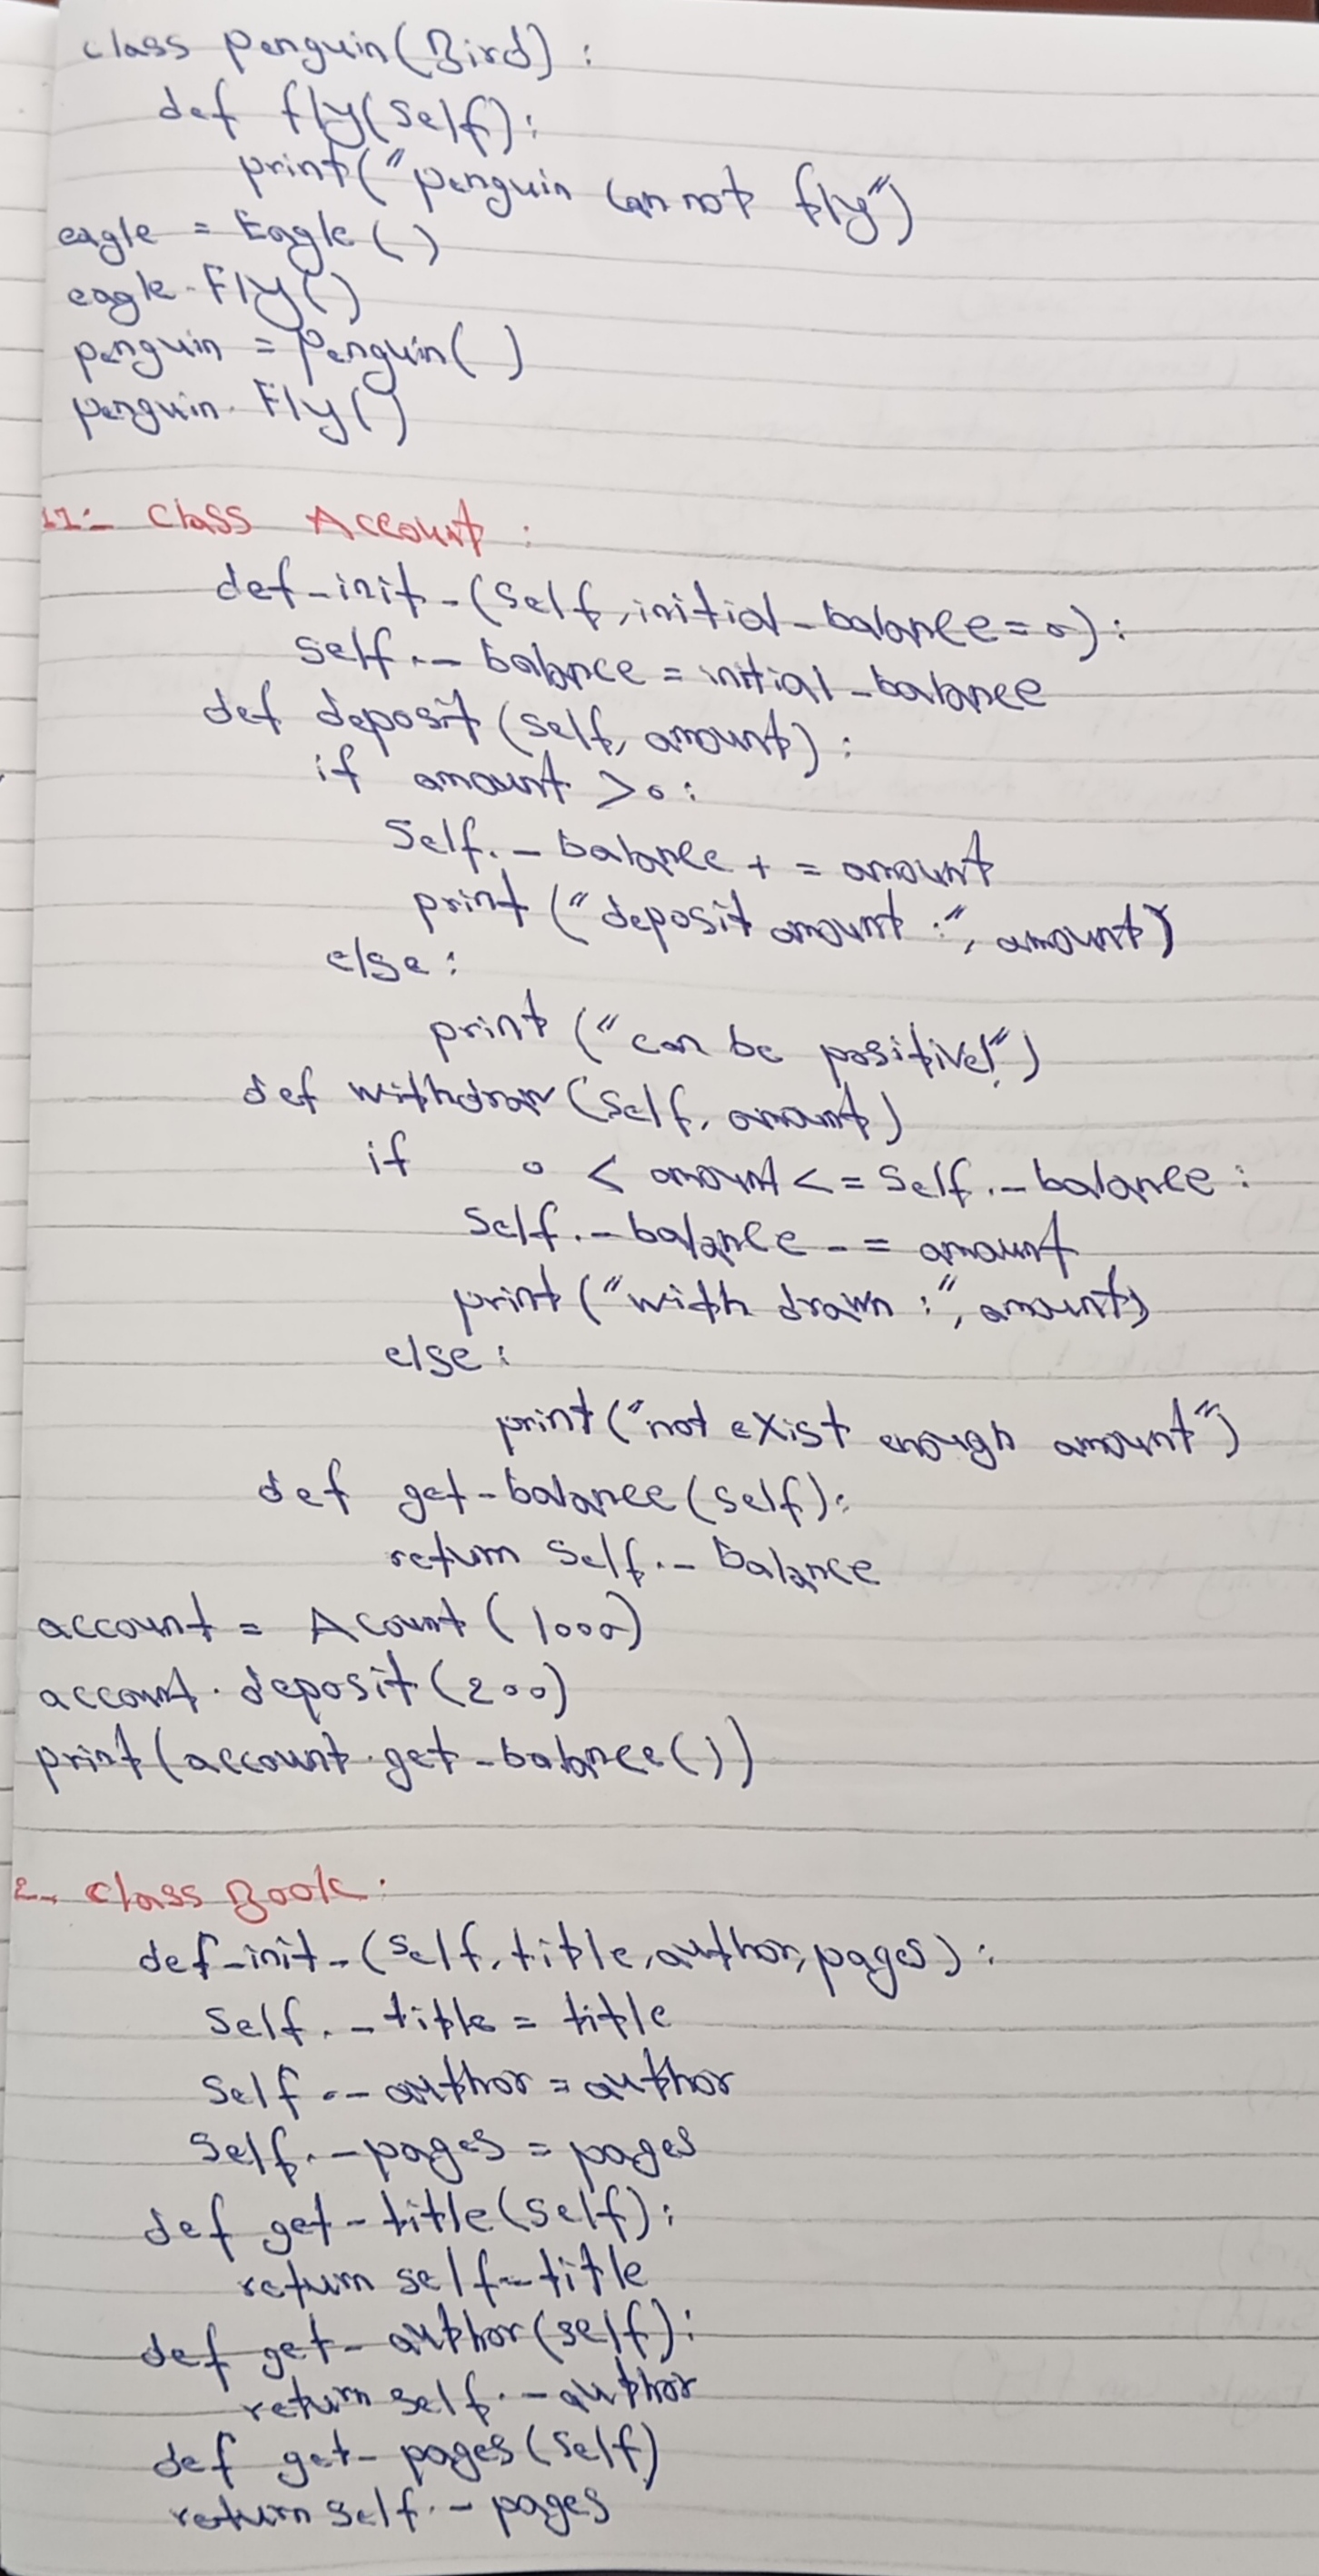 class Penguin(Bird):
def fly(self):
print("penguin can not fly")
eagle = Eagle()
eagle.Fly()
penguin = Penguin()
penguin.Fly()
11- Class Account:
def_init_(self,initial_balance=0):
self._balance = initial_balance
def deposit(self, amount):
if amount >0:
Self._balance + = amount
print("deposit amount:", amount)
else:
print("can be positive!")
def withdraw(self, amount)
if 0 < amount <= self._balance:
Self._balance -= amount
print("with drawn:", amount)
else:
print("not exist enough amount")
def get_balance(self):
return self._balance
account = Acount(1000)
account.deposit(200)
print(account.get_balance())
2- class Book:
def_init_(self,title,author,pages):
Self._title = title
Self._author = author
Self._pages = pages
def get_title(self):
return self_title
def get_author(self):
return self._author
def get_pages(self)
return self._pages